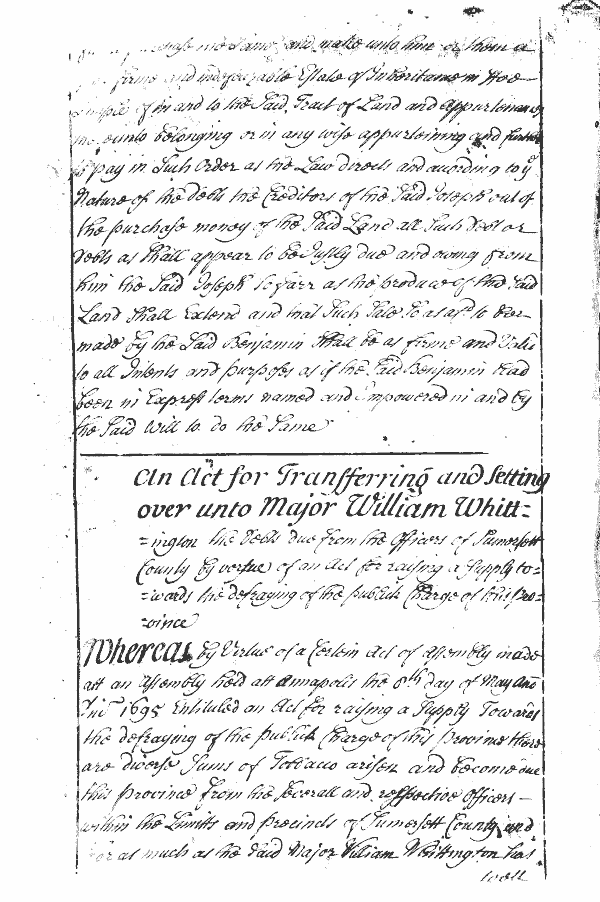 purchase the Same and make unto him or them a
firme and indefeazable Estate of Inheritance in Fee
Simple of in and to the Said Tract of Land and appurtenances
thereunto belonging or in any wise appurteining and further
to pay in Such Order as the Law directs and according to ye
Nature of the debts the Creditors of the Said Joseph out of
the purchase money of the Said Land all Such debt or
debts as Shall appear to be Justly due and owing from
him the Said Joseph So farr as the produce of the Said
Land Shall Extend and that Such Sale So as afsd to bee
made by the Said Benjamin Shall be as firme and Valid
to all Intents and purposes as if the Said Benjamin had
been in Express terms named and Impowered in and by
the Said Will to do the Same
An Act for Transfferring and Setting
over unto Major William Whitt=
=ington the Debts due from the Officers of Sumersett
County by vertue of an Act for raising a Supply to=
=wards the defraying of the publick Charge of this Pro=
=vince
Whereas by Virtue of a Certein Act of Assembly made
att an Assembly held att Annapolis the 8th day of May Ano
Dni 1695 Entituled an Act for raising a Supply Towards
the defraying of the publick Charge of this Province there
are diverse Sums of Tobacco arisen and become due
this Province from the Severall and respective Officers
within the Limitts and precincts of Sumersett County and
for as much as the Said Major William Whittington has
well